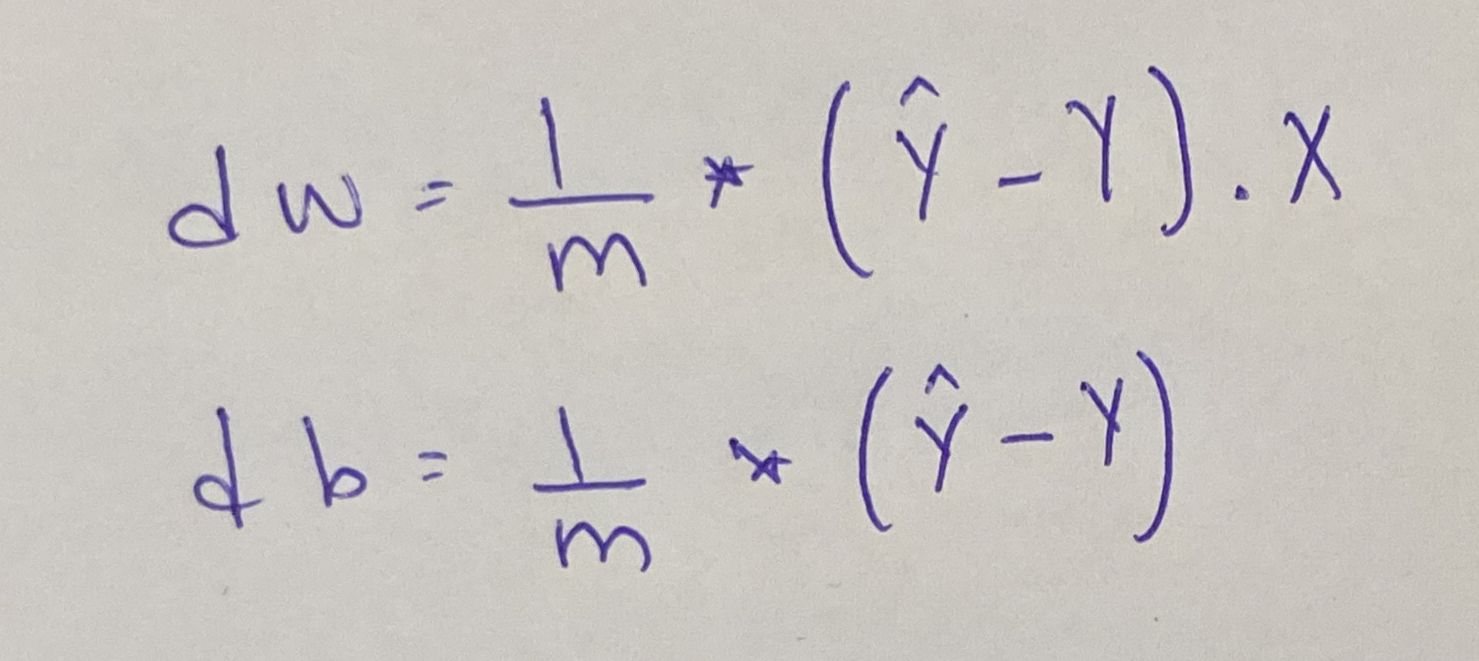 dw = 1/m * (Ŷ - Y) . X
db = 1/m * (Ŷ - Y)